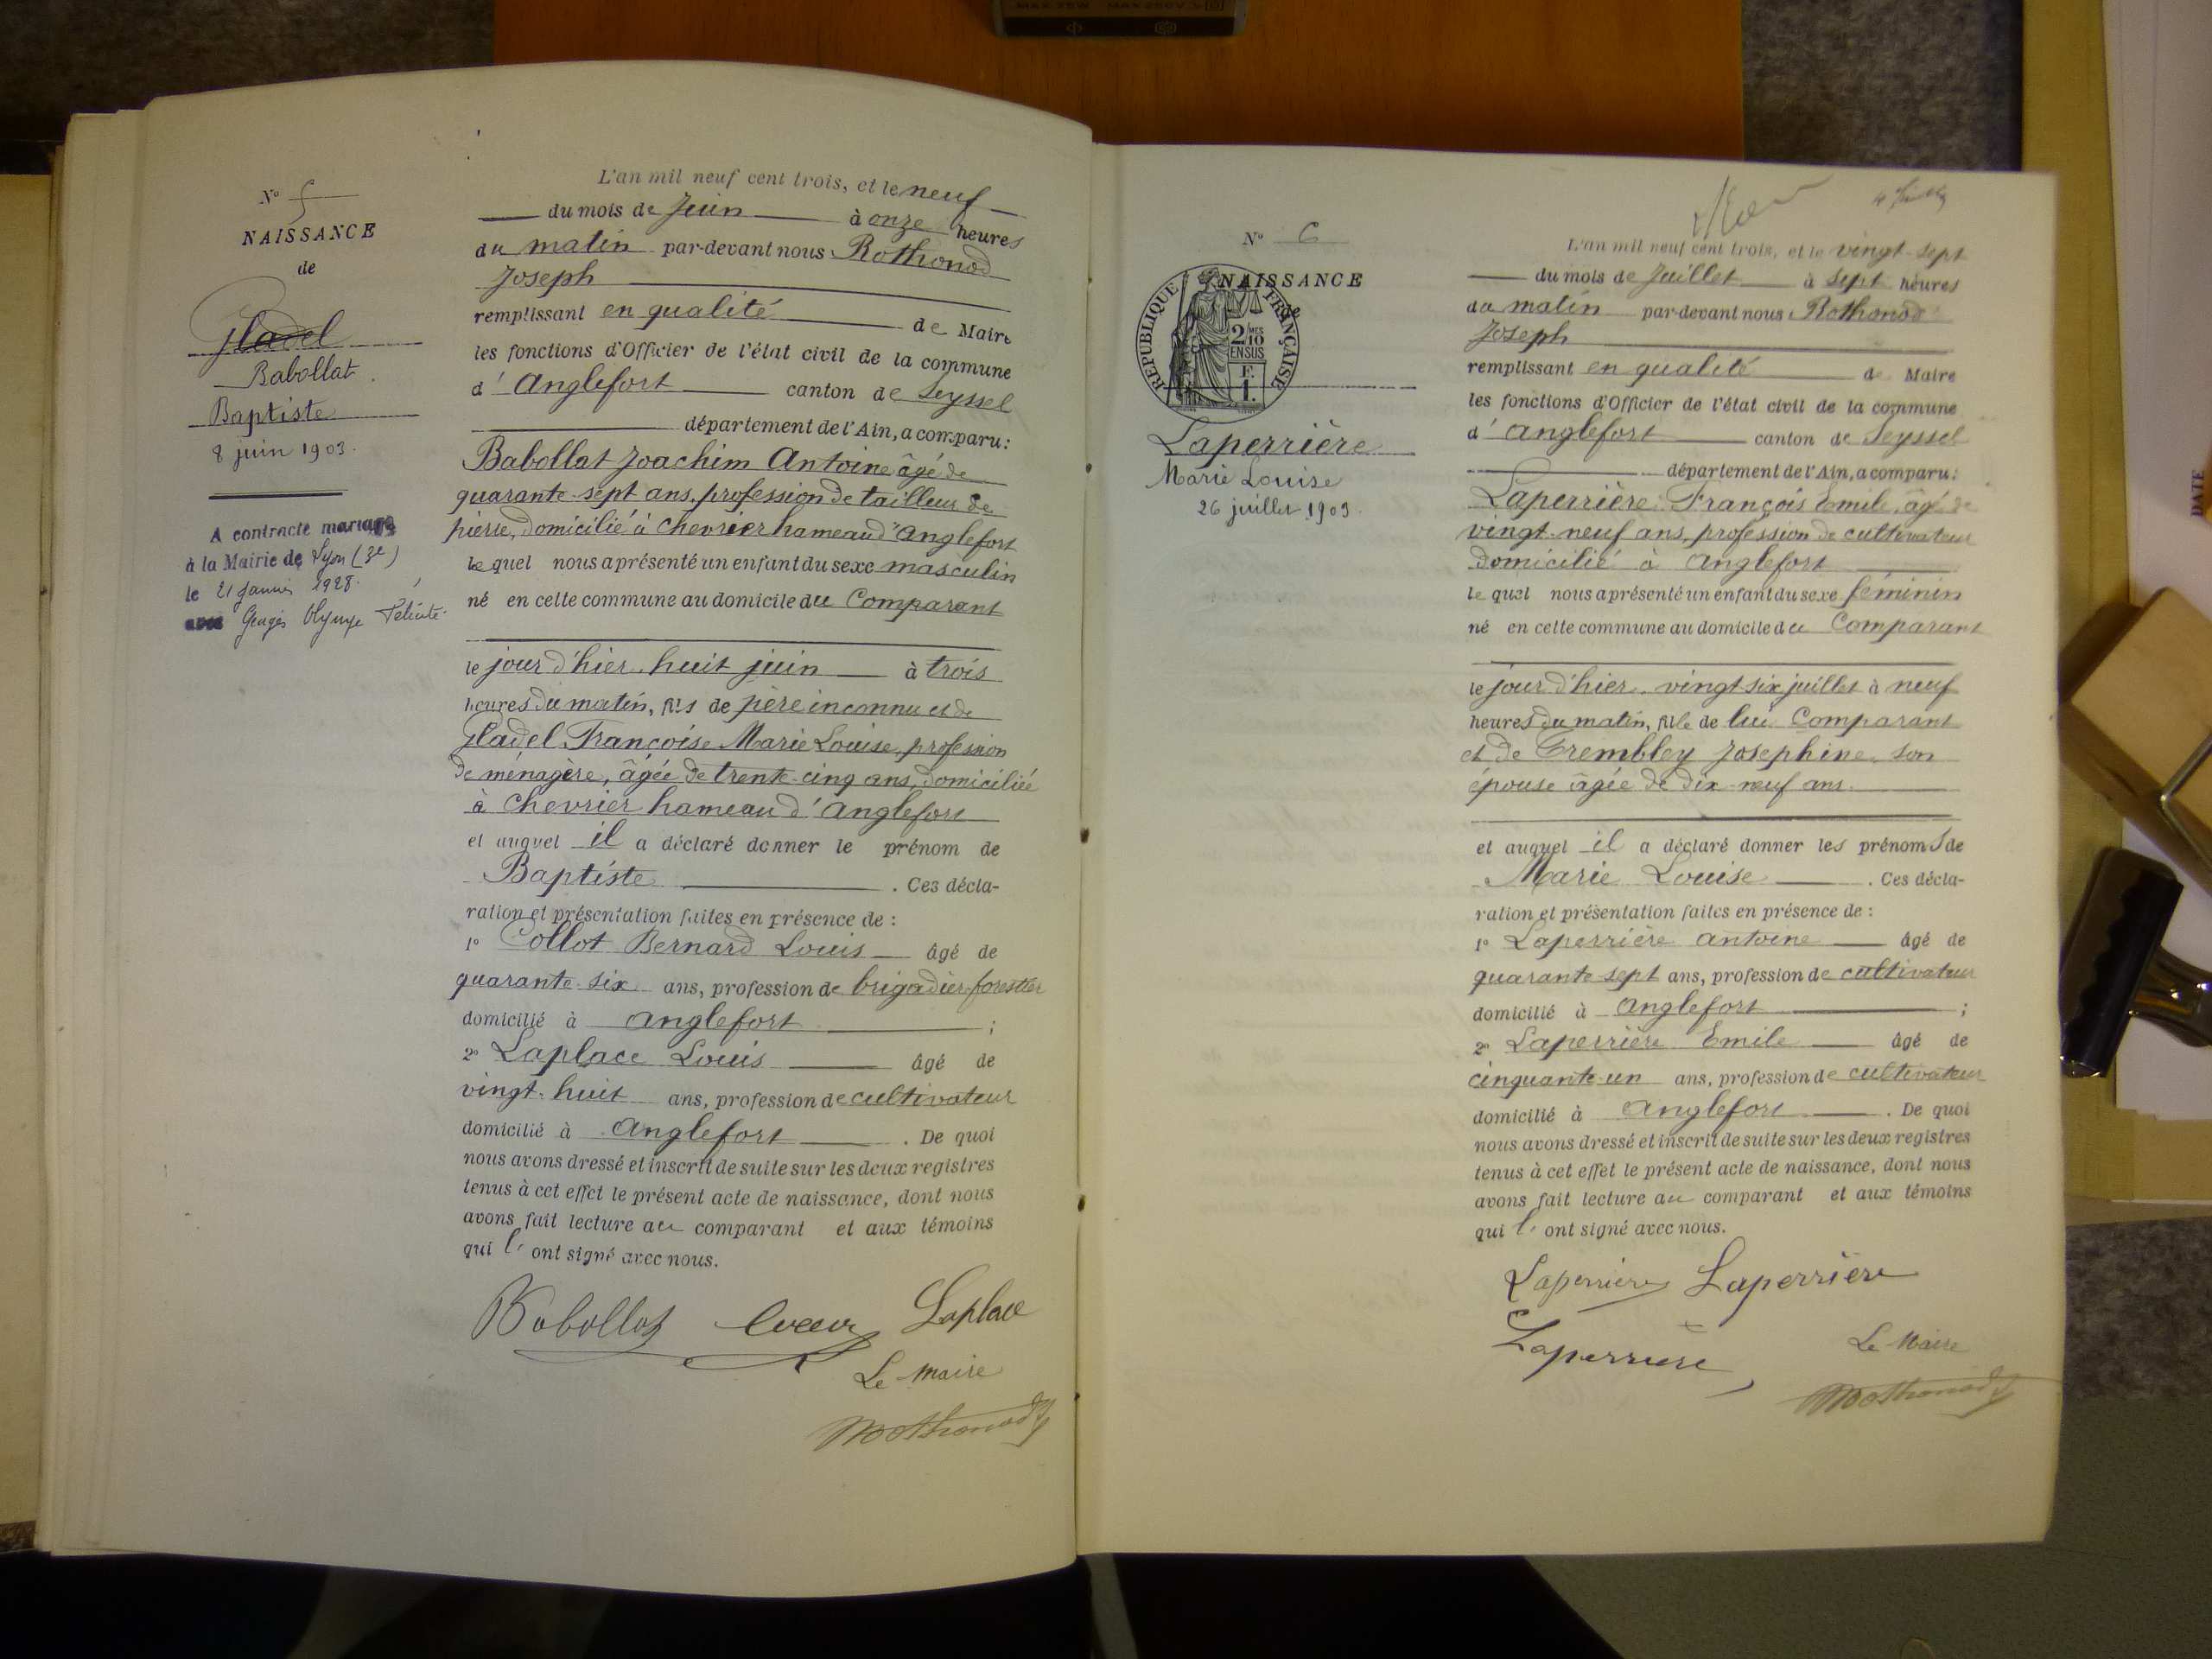 N° 5
NAISSANCE
de
Gladel
Babollat
Baptiste
8 juin 1903.
A contracté mariage
à la Mairie de Lyon (3e)
le 21 Janvier 1928.
avec Olympe Félicité
L'an mil neuf cent trois, et le neuf
du mois de Juin à onze heures
du matin par-devant nous Rothonod
Joseph
remplissant en qualité de Maire
les fonctions d'Officier de l'état civil de la commune
d' Anglefort canton de Seyssel
département de l'Ain, a comparu :
Babollat Joachim Antoine âgé de
quarante-sept ans, profession de tailleur de
pierre, domicilié à Chevrier hameau d'Anglefort
lequel nous a présenté un enfant du sexe masculin
né en cette commune au domicile du Comparant
le jour d'hier, huit juin à trois
heures du matin, fils de père inconnu et de
Gladel Françoise Marie Louise, profession
de ménagère, âgée de trente-cinq ans, domiciliée
à Chevrier hameau d'Anglefort
et auquel il a déclaré donner le prénom de
Baptiste . Ces décla-
ration et présentation faites en présence de :
1° Collot Bernard Louis âgé de
quarante-six ans, profession de brigadier-forestier
domicilié à Anglefort ;
2° Laplace Louis âgé de
vingt-huit ans, profession de cultivateur
domicilié à Anglefort . De quoi
nous avons dressé et inscrit de suite sur les deux registres
tenus à cet effet le présent acte de naissance, dont nous
avons fait lecture au comparant et aux témoins
qui l' ont signé avec nous.
Babollat Laplace
Le Maire
Rothonod
N° 6
NAISSANCE
de
REPUBLIQUE FRANÇAISE
2/10 MES
EN SUS
F.
1.
Laperrière
Marie Louise
26 juillet 1903.
L'an mil neuf cent trois, et le vingt-sept
du mois de Juillet à sept heures
du matin par-devant nous Rothonod
Joseph
remplissant en qualité de Maire
les fonctions d'Officier de l'état civil de la commune
d' Anglefort canton de Seyssel
département de l'Ain, a comparu :
Laperrière François Emile, âgé de
vingt-neuf ans, profession de cultivateur
domicilié à Anglefort
lequel nous a présenté un enfant du sexe féminin
né en cette commune au domicile du Comparant
le jour d'hier, vingt six juillet à neuf
heures du matin, fille de lui Comparant
et de Trembley Josephine, son
épouse âgée de dix-neuf ans.
et auquel il a déclaré donner les prénoms de
Marie Louise . Ces décla-
ration et présentation faites en présence de :
1° Laperrière Antoine âgé de
quarante-sept ans, profession de cultivateur
domicilié à Anglefort ;
2° Laperrière Emile âgé de
cinquante-un ans, profession de cultivateur
domicilié à Anglefort . De quoi
nous avons dressé et inscrit de suite sur les deux registres
tenus à cet effet le présent acte de naissance, dont nous
avons fait lecture au comparant et aux témoins
qui l' ont signé avec nous.
Laperrière Laperrière
Laperrière
Le Maire
Rothonod
DATE